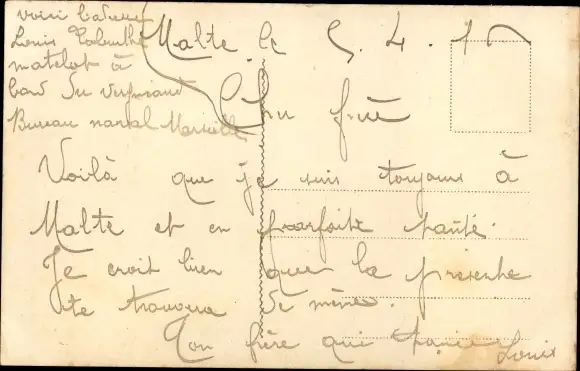 voici l'adresse
Louis
matelot à
bord du Vergniaud
Bureau naval Marseille
Malte le 5. 4. 17
Cher frère
Voilà que je suis toujours à
Malte et en parfaite santé.
Je croit bien que la présente
te trouvera de même.
Ton frère qui
Louis